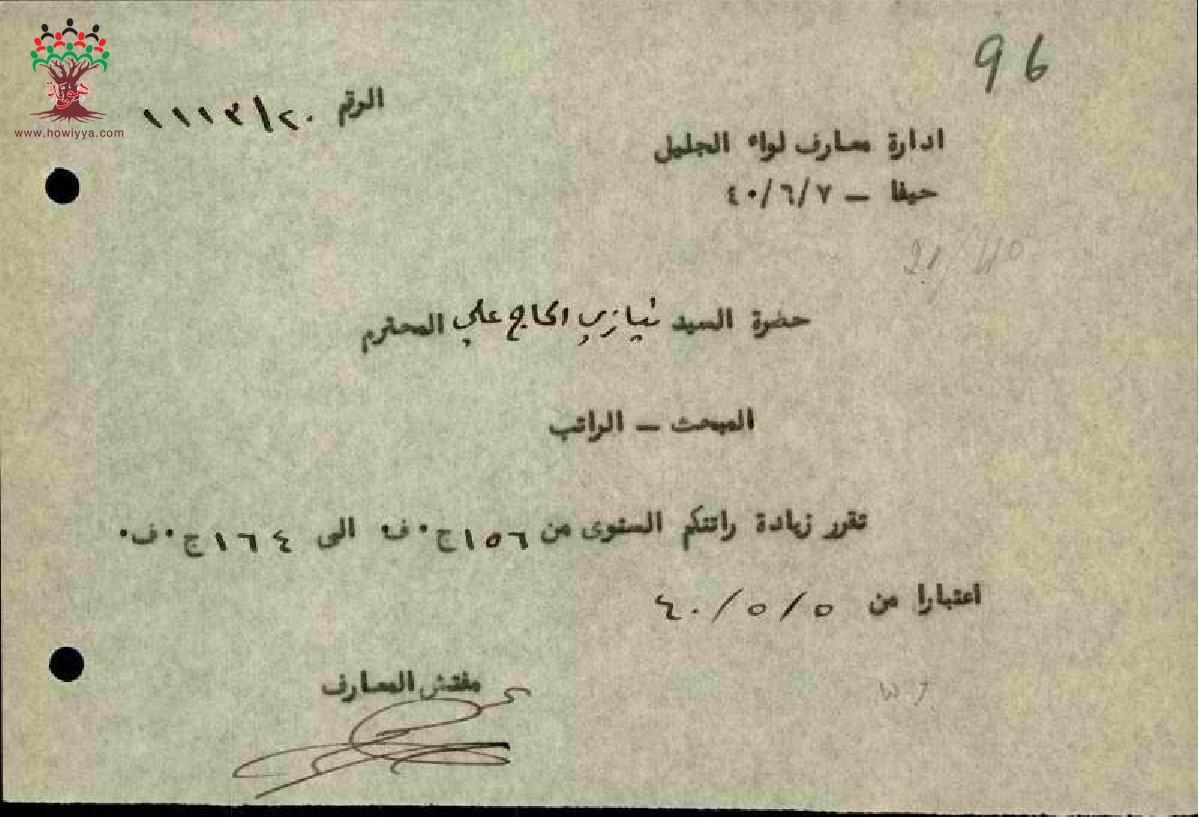 96
الرقم ١١١٣/٢٠
ادارة معارف لواء الجليل
حيفا – ٤٠/٦/٧
21/40
حضرة السيد نيازي الحاج علي المحترم
المبحث – الراتب
تقرر زيادة راتبكم السنوى من ١٥٦ ج٠ ف٠ الى ١٦٤ ج٠ ف٠
اعتبارا من ٤٠/٥/٥
مفتش المعارف
هوية
www.howiyya.com